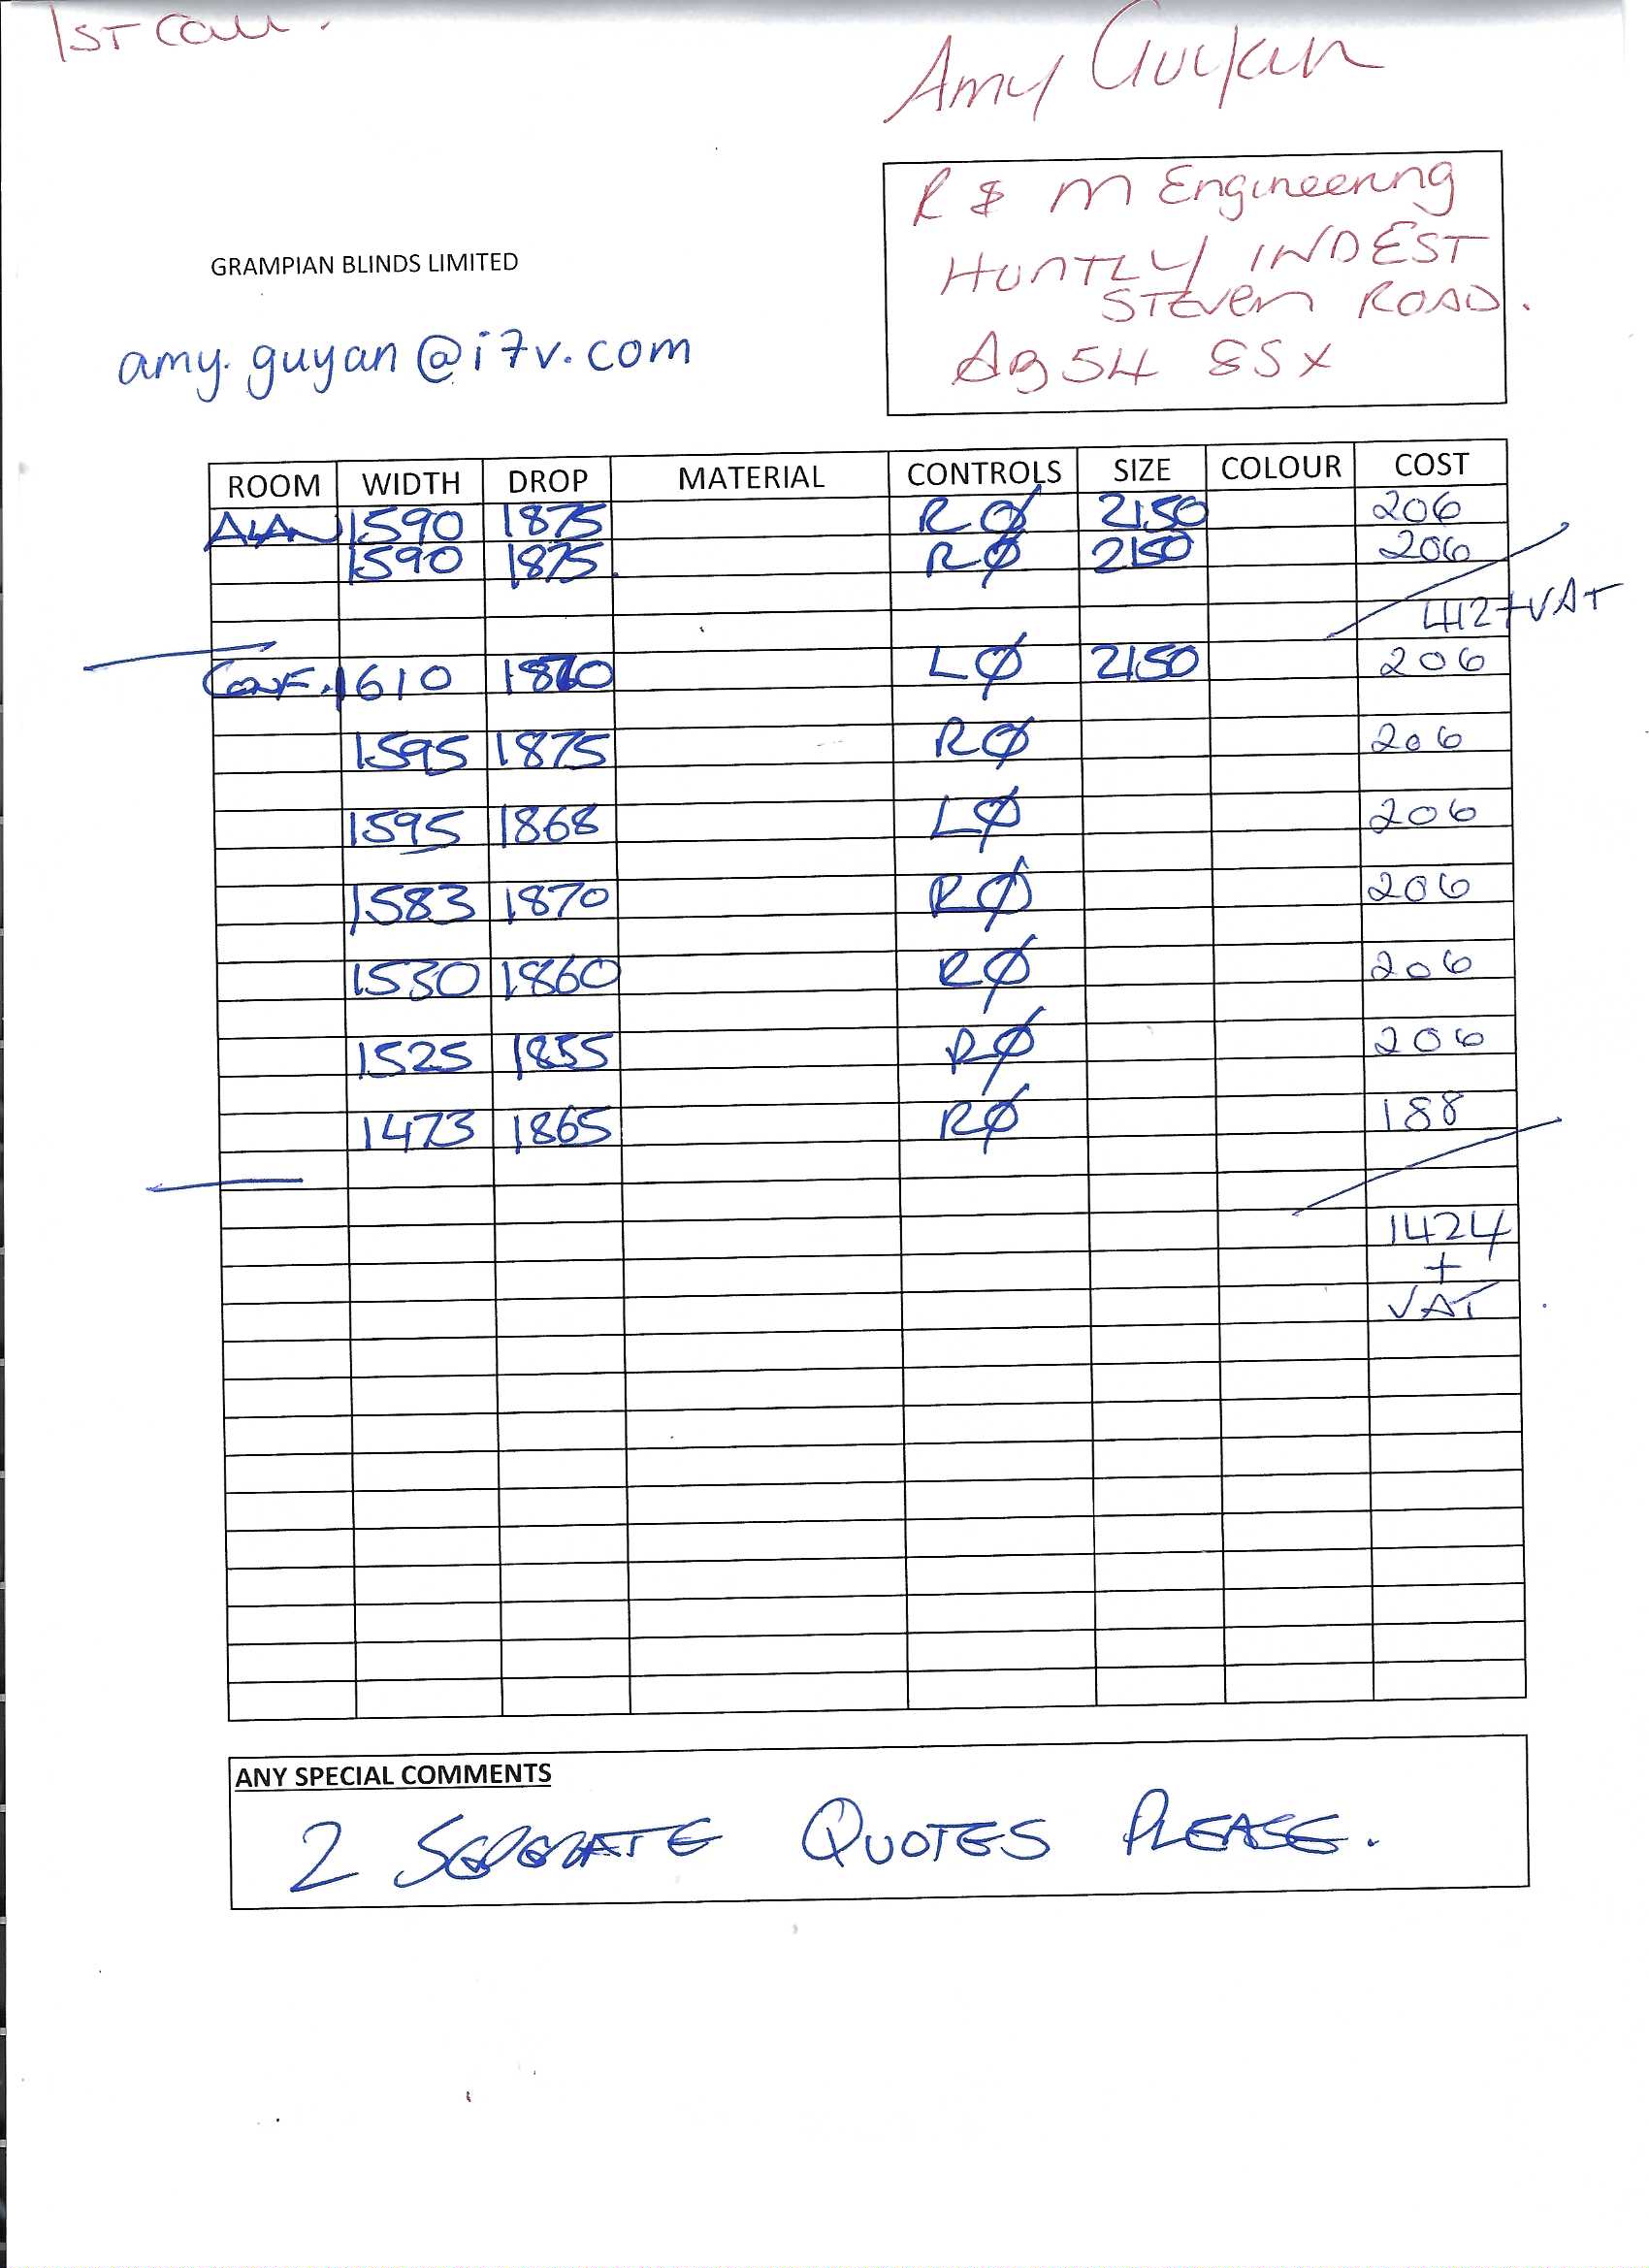 1ST Call.
Amy Guyan
R & M Engineering
HUNTLY INDEST
STEVEN ROAD.
AB54 8SX
GRAMPIAN BLINDS LIMITED
amy.guyan@i7v.com
ROOM WIDTH DROP MATERIAL CONTROLS SIZE COLOUR COST
ALAN 1590 1875 RØ 2150 206
1590 1875 RØ 2150 206
412+VAT
CONF. 1610 1870 LØ 2150 206
1595 1875 RØ 206
1595 1868 LØ 206
1583 1870 RØ 206
1530 1860 RØ 206
1525 1855 RØ 206
1473 1865 RØ 188
1424
+
VAT
ANY SPECIAL COMMENTS
2 SEPERATE QUOTES PLEASE.